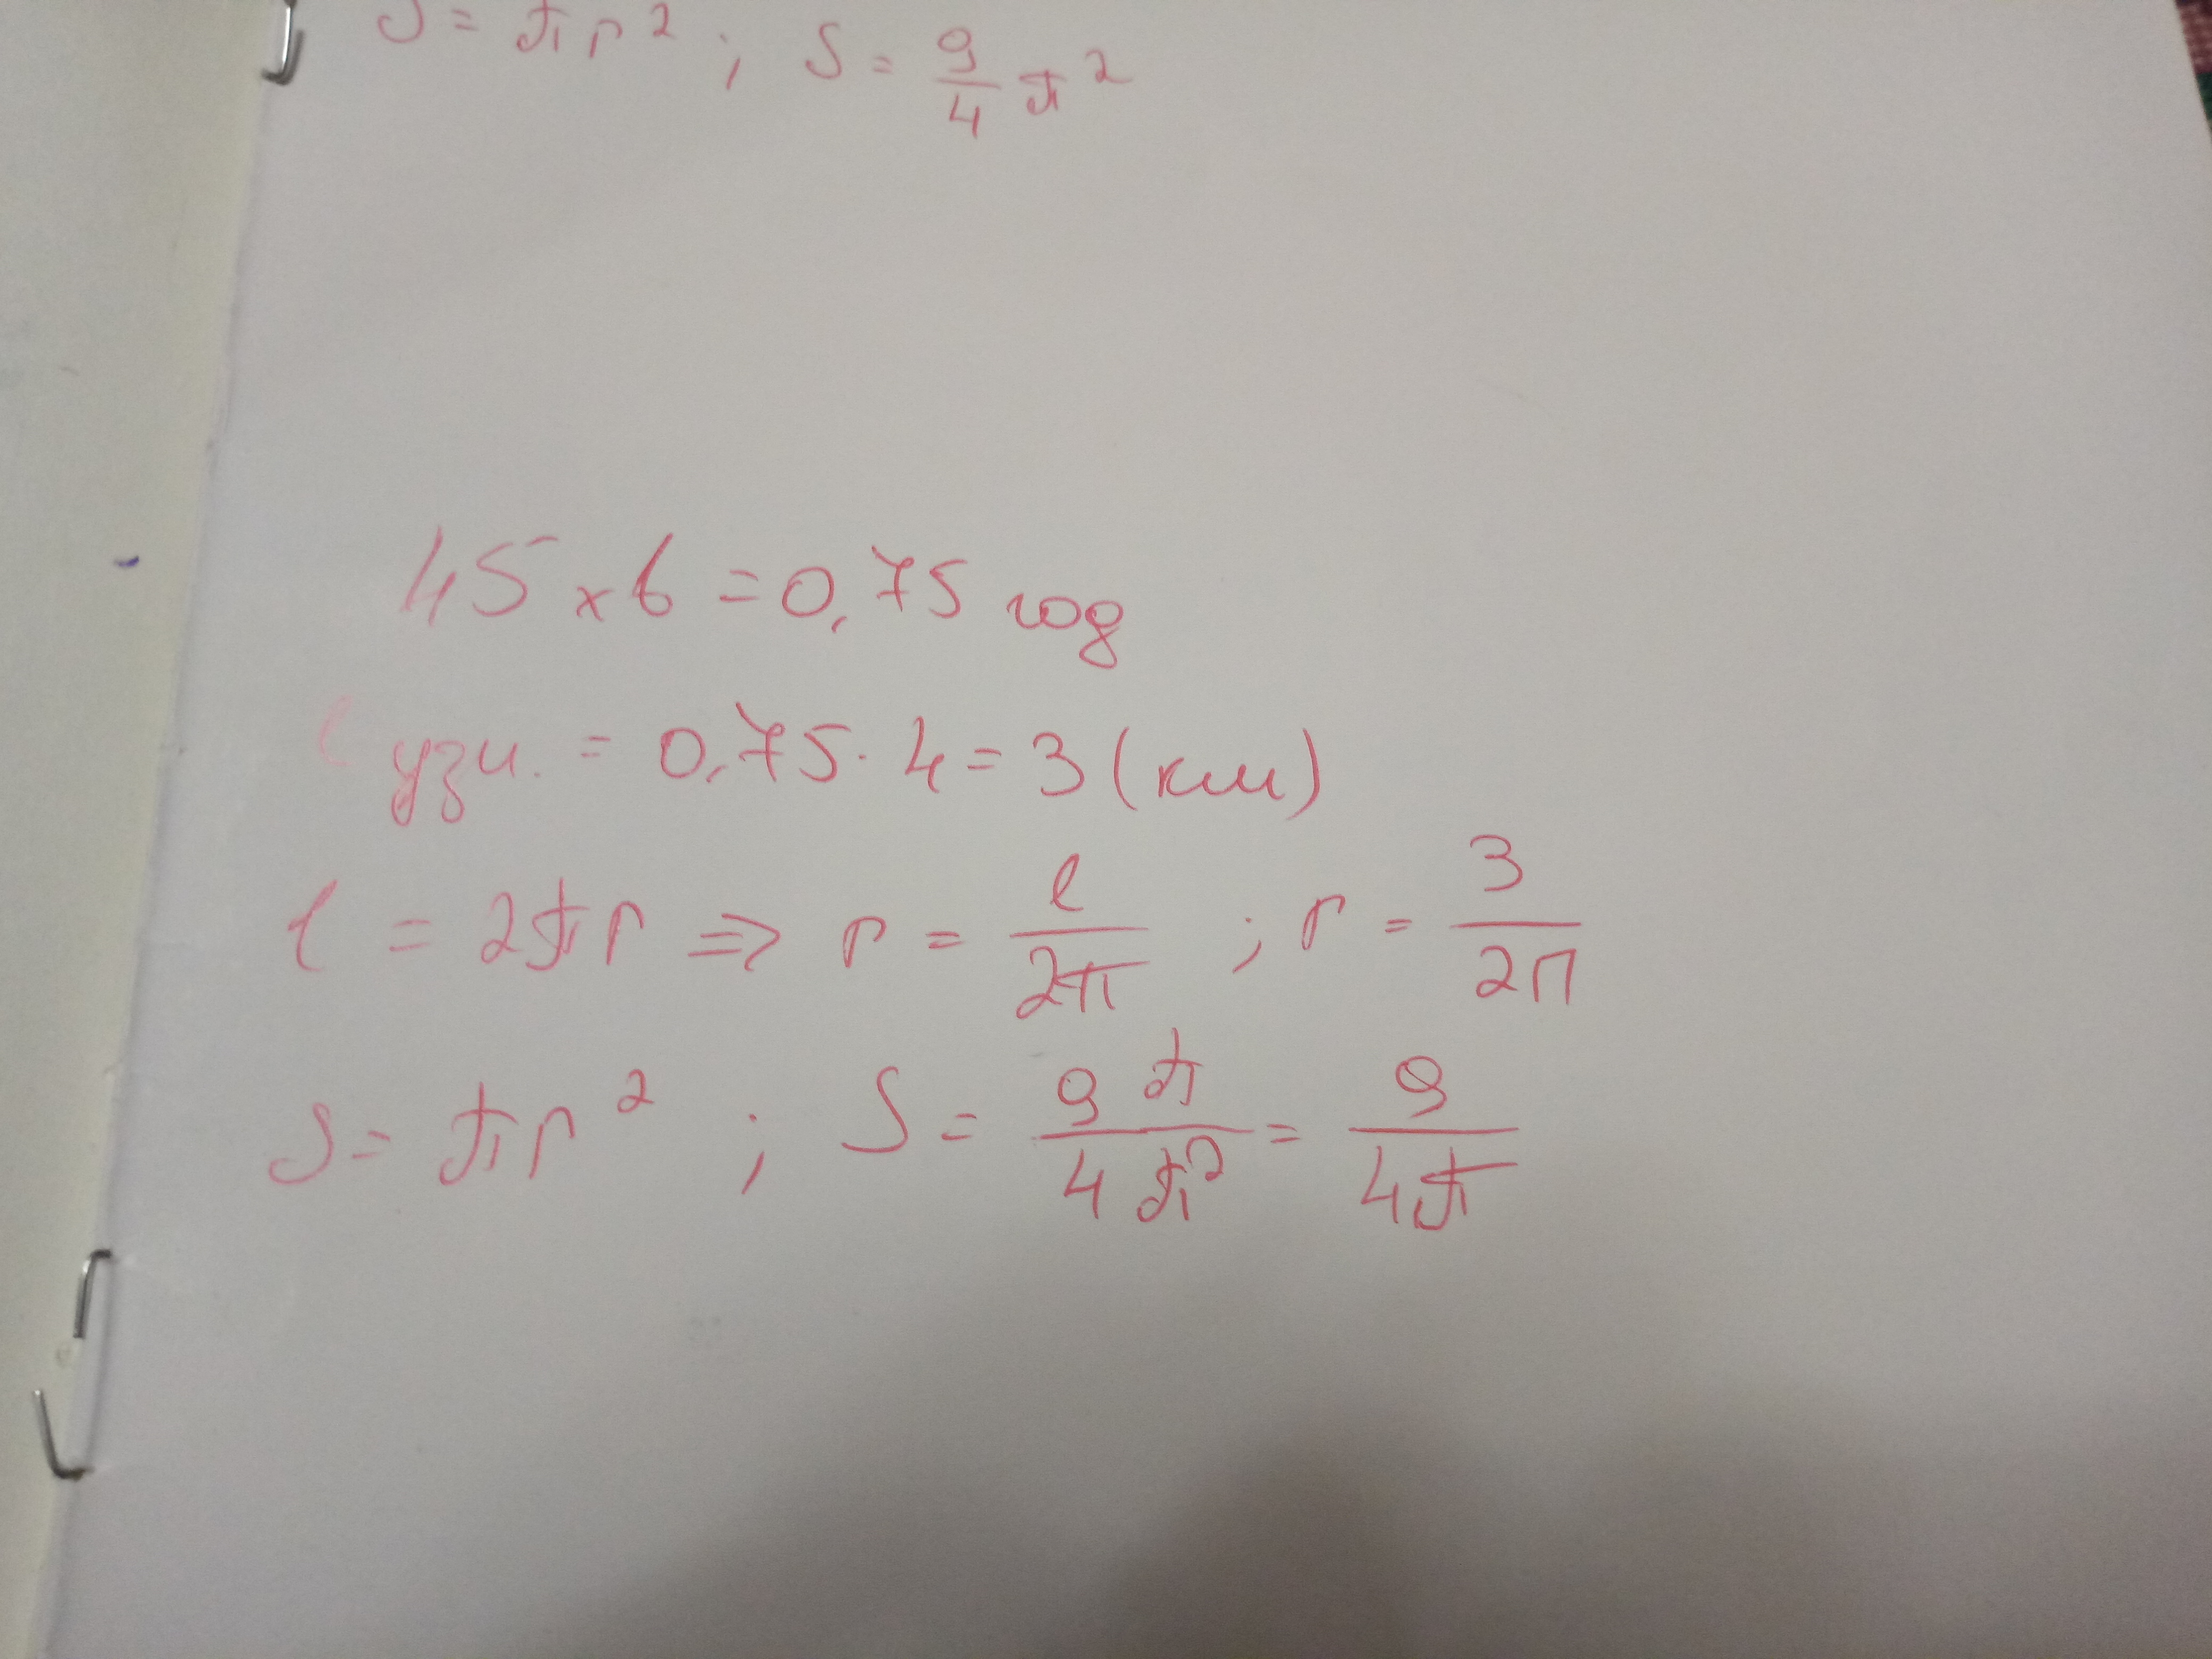 S = πr² ; S = 9/4 π²
45 хв = 0,75 год
l узн. = 0,75 · 4 = 3 (км)
l = 2πr ⇒ r = l/2π ; r = 3/2π
S = πr² ; S = 9π/4π² = 9/4π